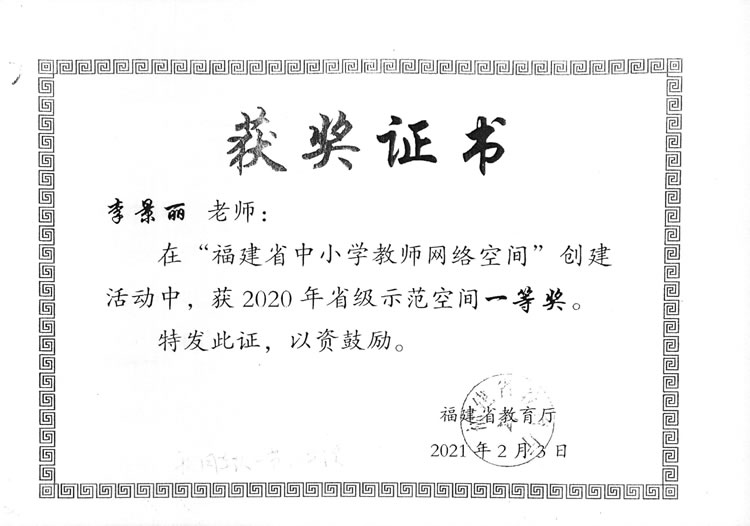 获奖证书
李景丽 老师：
在“福建省中小学教师网络空间”创建
活动中，获 2020 年省级示范空间一等奖。
特发此证，以资鼓励。
福建省教育厅
2021 年 2 月 3 日